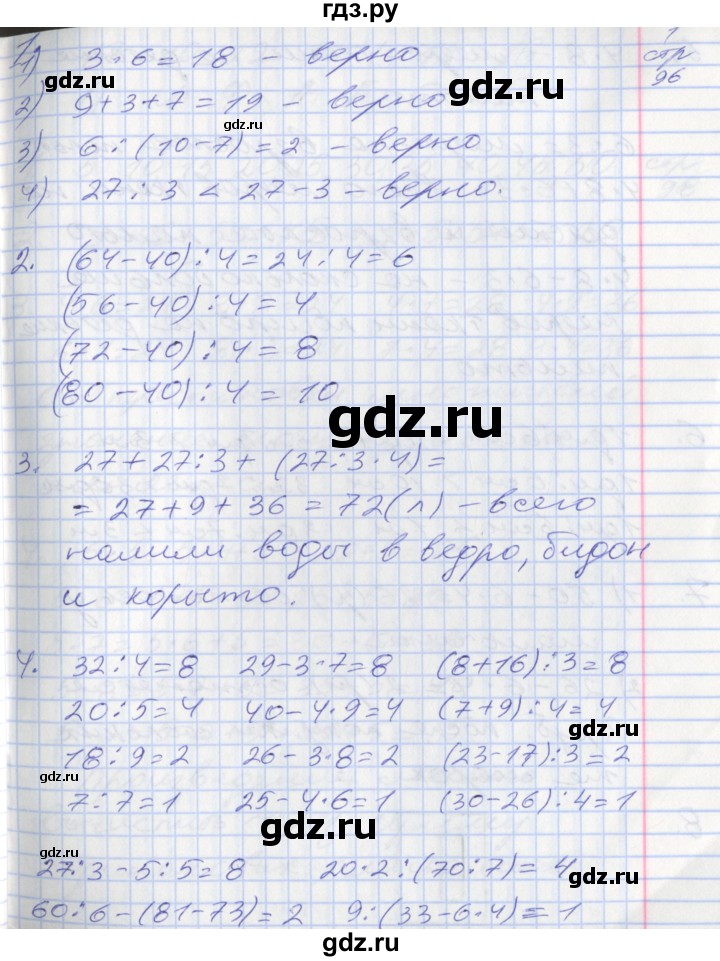 гдз.ру
1
стр
96
1) 3·6=18 – верно
gdz.ru
2) 9+3+7=19 – верно
gdz.ru
gdz.ru
3) 6:(10-7)=2 – верно
4) 27:3<27-3 – верно.
gdz.ru
2. (64-40):4=24:4=6
(56-40):4=4
(72-40):4=8
(80-40):4=10
gdz.ru
3. 27+27:3+(27:3·4)=
=27+9+36=72(л) – всего
налили воды в ведро, бидон
и корыто.
4. 32:4=8 29-3·7=8 (8+16):3=8
20:5=4 40-4·9=4 (7+9):4=4
gdz.ru
18:9=2 26-3·8=2 (23-17):3=2
gdz.ru
7:7=1 25-4·6=1 (30-26):4=1
gdz.ru
gdz.ru
27:3-5:5=8 20·2:(70:7)=4
gdz.ru
60:6-(81-73)=2 9:(33-6·4)=1
gdz.ru